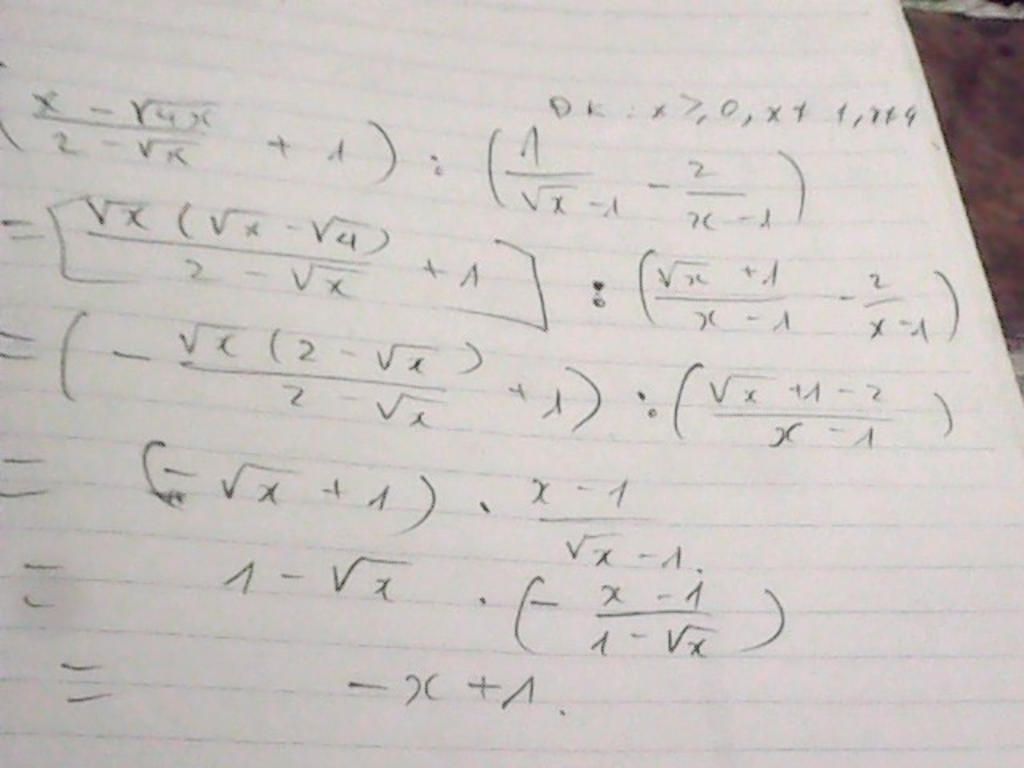 ĐK : x ≥ 0, x ≠ 1, x ≠ 4
( (x - √4x)/(2 - √x) + 1 ) : ( 1/(√x - 1) - 2/(x - 1) )
= [ √x (√x - √4)/(2 - √x) + 1 ] : ( (√x + 1)/(x - 1) - 2/(x - 1) )
= ( - √x (2 - √x)/(2 - √x) + 1 ) : ( (√x + 1 - 2)/(x - 1) )
= (- √x + 1) . (x - 1)/(√x - 1).
= 1 - √x . (- (x - 1)/(1 - √x))
= - x + 1.